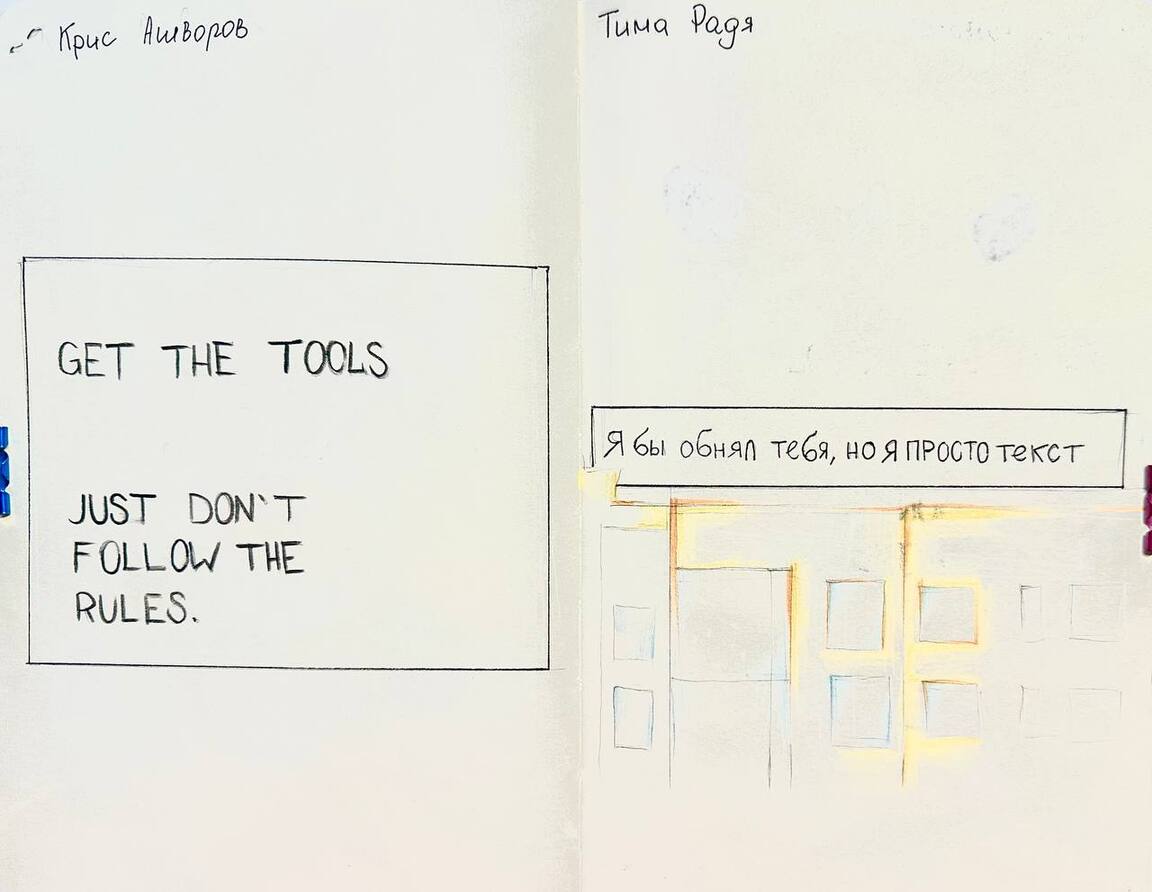 Крис Ашворов
GET THE TOOLS
JUST DON'T
FOLLOW THE
RULES.
Тима Радя
Я бы обнял тебя, но я просто текст